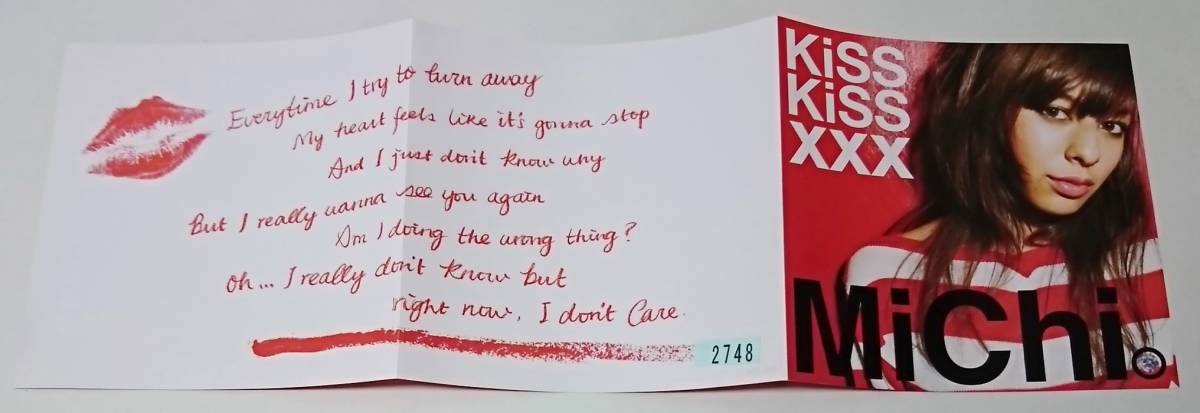 Everytime I try to turn away
My heart feels like it's gonna stop
And I just don't know why
But I really wanna see you again
Am I doing the wrong thing?
Oh... I really don't know but
right now, I don't Care.
2748
KiSS
KiSS
XXX
MiChi.